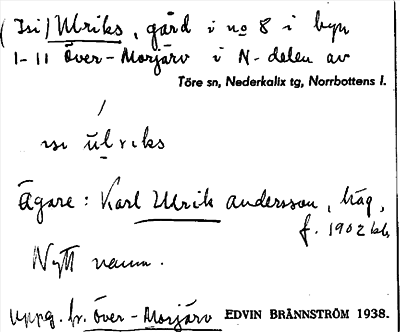 (Isi) Ulriks, gård i no 8 i byn
1-11 Över-Morjärv i N-delen av
Töre sn, Nederkalix tg, Norrbottens l.
isi ulriks
Ägare: Karl Ulrik Andersson, häg,
f. 1902
Nytt namn.
Uppg. fr. Över-Morjärv EDVIN BRÄNNSTRÖM 1938.